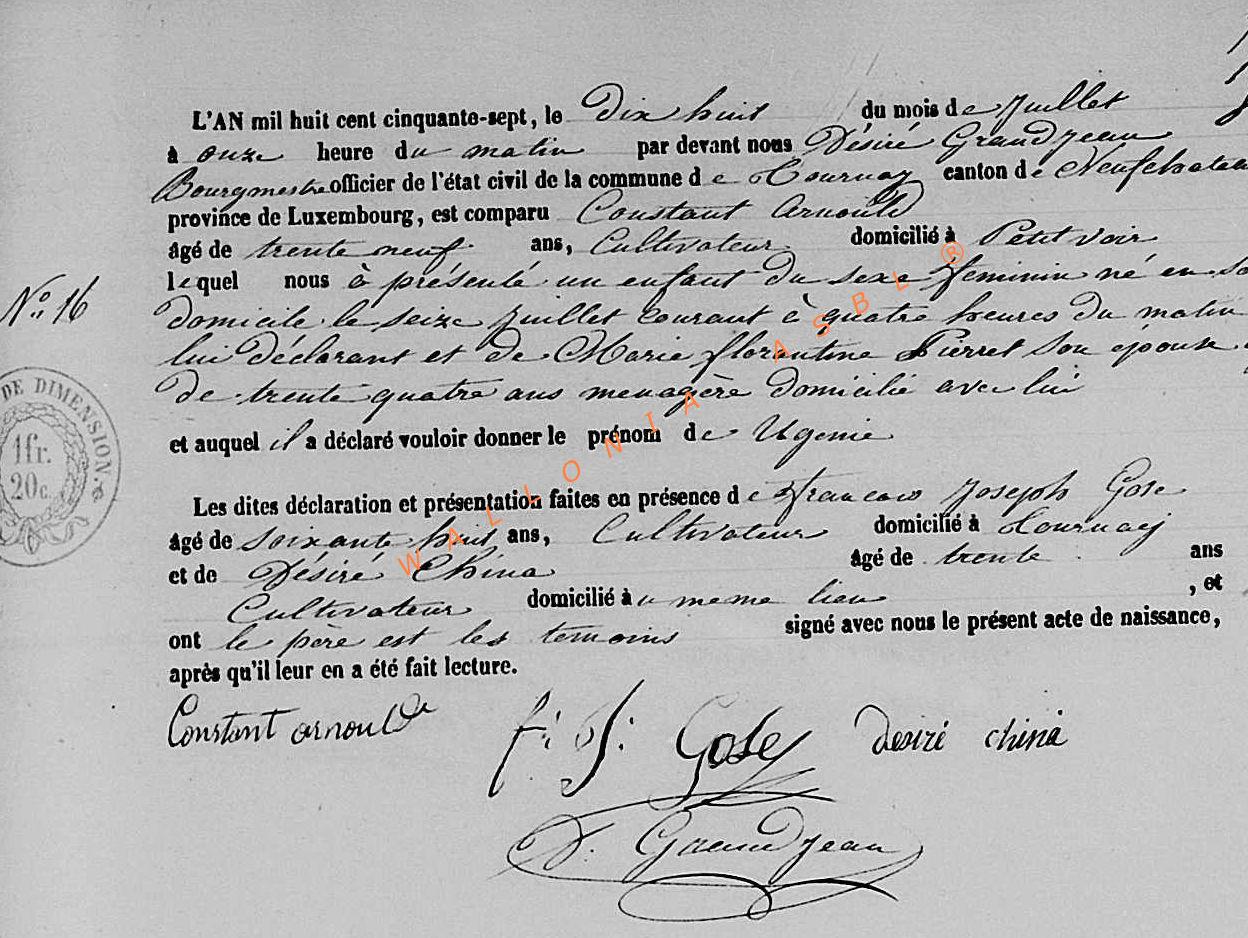 L'AN mil huit cent cinquante-sept, le Dix huit du mois de Juillet
à onze heure du matin par devant nous Désiré Grandjean
Bourgmestre officier de l'état civil de la commune de Tournay canton de Neufchateau
province de Luxembourg, est comparu Constant Arnould
âgé de trente neuf ans, Cultivateur domicilié à Petitvoir
lequel nous à présenté un enfant du sexe feminin né en so
N° 16
domicile le seize Juillet courant à quatre heures du matin
lui déclarant et de Marie florentine Pierret son épouse
de trente quatre ans menagère domicilié avec lui
DE DIMENSION.
1fr.
20c.
et auquel il a déclaré vouloir donner le prénom de Ugenie
Les dites déclaration et présentation faites en présence de francois Joseph Gose
âgé de soixante huit ans, Cultivateur domicilié à Tournay
et de Désiré China âgé de trente ans
Cultivateur domicilié àu meme lieu , et
ont le père est les temoins signé avec nous le présent acte de naissance,
après qu'il leur en a été fait lecture.
Constant arnould
f. J. Gose desiré china
D. Grandjean
WALLONIA ASBL ®